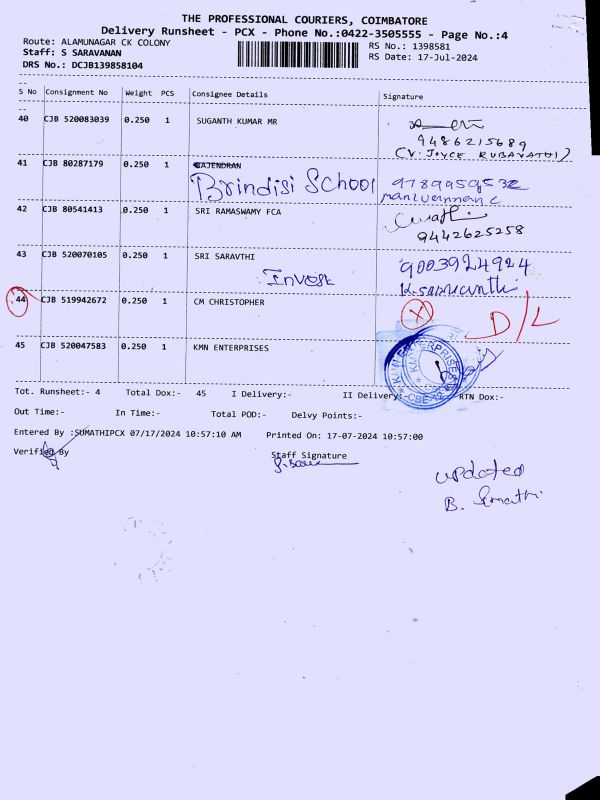 THE PROFESSIONAL COURIERS, COIMBATORE
Delivery Runsheet - PCX - Phone No.:0422-3505555 - Page No.:4
Route: ALAMUNAGAR CK COLONY
RS No.: 1398581
Staff: S SARAVANAN
RS Date: 17-Jul-2024
DRS No.: DCJB139858104
S No Consignment No Weight PCS Consignee Details Signature
40 CJB 520083039 0.250 1 SUGANTH KUMAR MR
9486215689
(V. JOYCE RUBAVATHI)
41 CJB 80287179 0.250 1 RAJENDRAN
Brindisi School
42 CJB 80541413 0.250 1 SRI RAMASWAMY FCA
9442625258
43 CJB 520070105 0.250 1 SRI SARAVTHI 9003924924
Invest
44 CJB 519942672 0.250 1 CM CHRISTOPHER X D/L
45 CJB 520047583 0.250 1 KMN ENTERPRISES
KMN ENTERPRISES
Tot. Runsheet:- 4 Total Dox:- 45 I Delivery:- II Delivery:- RTN Dox:-
Out Time:- In Time:- Total POD:- Delvy Points:-
Entered By :SUMATHIPCX 07/17/2024 10:57:10 AM Printed On: 17-07-2024 10:57:00
Verified By Staff Signature
updated
B.